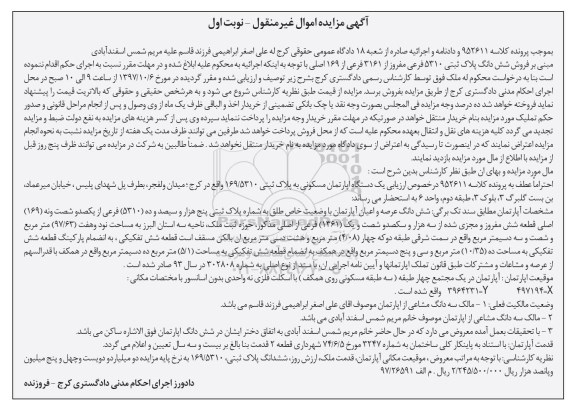 آگهی مزایده اموال غیرمنقول - نوبت اول
بموجب پرونده کلاسه ۹۵۲۶۱۱ و دادنامه و اجرائیه صادره از شعبه ۱۸ دادگاه عمومی حقوقی کرج له علی اصغر ابراهیمی فرزند قاسم علیه مریم شمس اسفندآبادی
مبنی بر فروش شش دانگ پلاک ثبتی ۵۳۱۰ فرعی مفروز از ۳۱۶۱ فرعی از ۱۶۹ اصلی با توجه به اینکه اجرائیه به محکوم علیه ابلاغ شده و در مهلت مقرر نسبت به اجرای حکم اقدام ننموده
است بنا به درخواست محکوم له ملک فوق توسط کارشناس رسمی دادگستری کرج بشرح زیر توصیف و ارزیابی شده و مقرر گردیده در مورخ ۱۳۹۷/۱۰/۶ از ساعت ۹ الی ۱۰ صبح در محل
اجرای احکام مدنی دادگستری کرج از طریق مزایده بفروش برسد. مزایده از قیمت طبق نظریه کارشناس شروع می شود و به هرشخص حقیقی و حقوقی که بالاترین قیمت را پیشنهاد
نماید فروخته خواهد شد ده درصد وجه مزایده فی المجلس بصورت وجه نقد یا چک بانکی تضمینی از خریدار اخذ و الباقی ظرف یک ماه از وی وصول و پس از انجام مراحل قانونی و صدور
حکم تملیک مورد مزایده بنام خریدار منتقل خواهد در صورتیکه در مهلت مقرر خریدار وجه مزایده را پرداخت ننماید سپرده وی پس از کسر هزینه های مزایده به نفع دولت ضبط و مزایده
تجدید می گردد کلیه هزینه های نقل و انتقال بعهده محکوم علیه است که از محل فروش پرداخت خواهد شد طرفین می توانند ظرف مدت یک هفته از تاریخ مزایده نسبت به نحوه انجام
مزایده اعتراض نمایند که در اینصورت تا رسیدگی به اعتراض از سوی دادگاه مورد مزایده به نام خریدار منتقل نخواهد شد . ضمناً طالبین به شرکت در مزایده می توانند ظرف پنج روز قبل
از مزایده با اطلاع از مال مورد مزایده بازدید نمایند.
مال مورد مزایده و بهای ان طبق نظر کارشناس بدین شرح است :
احتراماً عطف به پرونده کلاسه ۹۵۲۶۱۱ درخصوص ارزیابی یک دستگاه آپارتمان مسکونی به پلاک ثبتی ۱۶۹/۵۳۱۰ واقع در کرج-میدان ولفجر، بطرف پل شهدای پلیس ، خیابان میرعماد،
بن بست گلبرگ ۳، بلوک ۳، طبقه دوم، واحد ۶ به استحضار می رساند:
مشخصات آپارتمان مطابق سند تک برگی: شش دانگ عرصه و اعیان آپارتمان با وضعیت خاص طلق به شماره پلاک ثبتی پنج هزار و سیصد و ده (۵۳۱۰) فرعی از یکصدو شصت ونه (۱۶۹)
اصلی قطعه شش مفروز و مجزی شده از سه هزار و سکصدو شصت و یک (۱۴۶۱) فرعی از اصلی مذکور، حوزه ثبت ملک، ناحیه سه استان البرز به مساحت نود وهفت (۹۷/۶۳) متر مربع
و شصت و سه دسیمتر مربع واقع در سمت شرقی طبقه دوکه چهار (۴/۰۸) متر مربع و هشت دسی متر مربع ان بالکن مسقف است قطعه شش تفکیکی ، به انضمام پارکینگ قطعه شش
تفکیکی به مساحت ده (۱۰/۳۵) متر مربع و سی و پنج دسیمتر مربع واقع در همکف به انضمام قطعه شش تفکیکی به مساحت (۵/۱) متر مربع ده دسیمتر مربع واقع در همکف با قدرالسهم
از عرصه و مشاعات و مشترکات طبق قانون تملک اپارتمانها و آیین نامه اجرایی ان ، با سند از نوع اصلی به شماره ۳۰۲۸۰۸ در سال ۹۳ صادر شده است .
موقعیت اپارتمان : آپارتمان در یک مجتمع چهار طبقه (سه طبقه مسکونی روی همکف ) ، با اسکلت فلزی نه واحدی بدون اسانسور با مختصات مکانی :
۴۹۷۱۹۴-X ۳۹۶۴۳۳۱-Y واقع شده است .
وضعیت مالکیت فعلی: ۱ - مالک سه دانگ مشاعی از اپارتمان موصوف اقای علی اصغر ابراهیمی فرزند قاسم می باشد.
۲ - مالک سه دانگ مشاعی از اپارتمان موصوف خانم مریم شمس اسفند آبادی می باشد.
۳ - با تحقیقات بعمل آمده معروض می دارد که در حال حاضر خانم مریم شمس اسفند آبادی به اتفاق دختر ایشان در شش دانگ اپارتمان فوق الاشاره ساکن می باشد.
قدمت آپارتمان: با استناد به پایان‌کار کلی ساختمان به شماره ۳۲۴۷ مورخ ۷۴/۶/۵ شهرداری قطعه ۲ قدمت بنا بالغ بر بیست و سه سال تعیین و اعلام می گردد.
نظریه کارشناسی: با توجه به مراتب معروض ، موقعیت مکانی آپارتمان، قدمت ملک، ارزش روز، ششدانگ پلاک ثبتی، ۱۶۹/۵۳۱۰ به نرخ پایه مزایده دو میلیاردو دویست وچهل و پنج میلیون
وپانصد هزار ریال ۲/۲۴۵/۵۰۰/۰۰۰ ریال . م الف ۹۷/۲۶۵۹۱
دادورز اجرای احکام مدنی دادگستری کرج - فروزنده